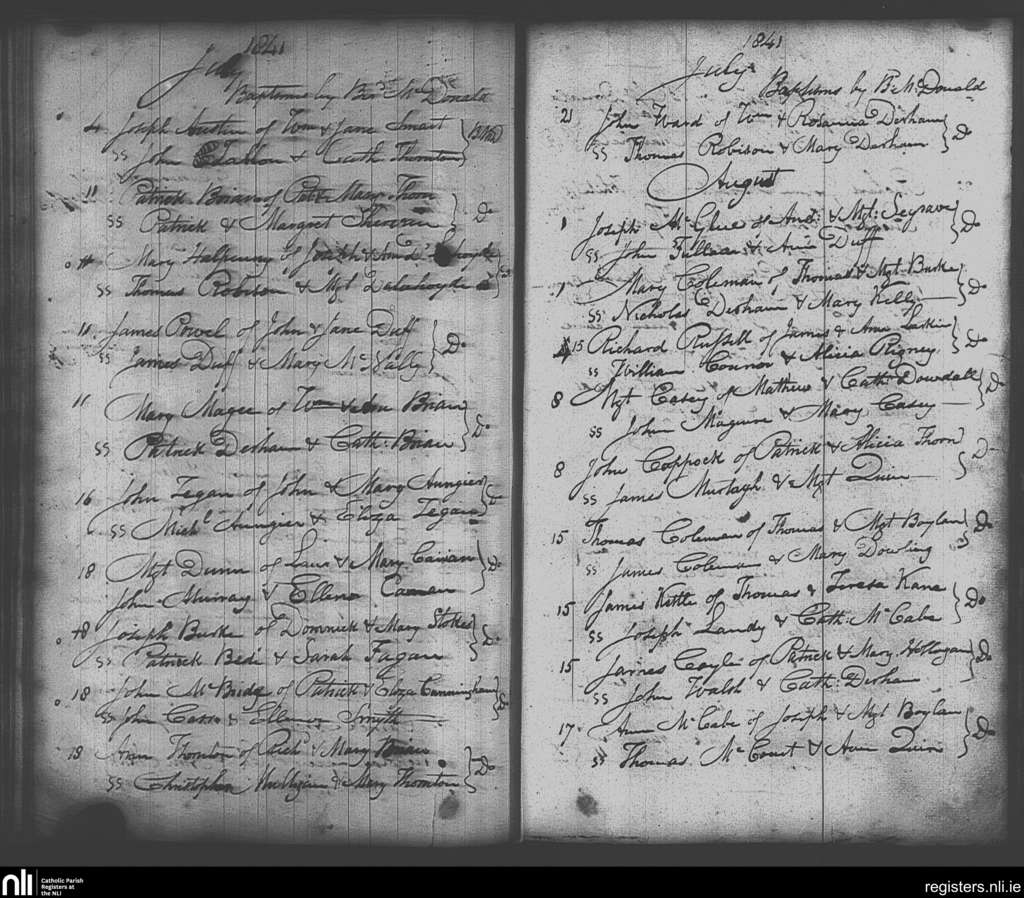 1841
July
Baptisms by Bn. Mc Donald
4 Joseph Austin of Wm & Jane Smart
SS John & Cath Thornton
11 Patrick Brian of Patk & Mary Thorn
SS Patrick & Margret Do
11 Mary Halpenny of Joseph & Ann
SS Thomas Robison & Mgt Delahoyde
11 James Powel of John & Jane Duff
SS James Duff & Mary Mc Nally Do
11 Mary Magee of Wm & Ann Brian
SS Patrick Dersham & Cath: Brian Do
16 John Fegan of John & Mary Aungier
SS Michl Aungier & Eliza Fegan Do
18 Mgt Dunn of Laur & Mary
John Murray & Ellena Do
18 Joseph Burke of Dominick & Mary Stokes
SS Patrick & Sarah Fagan Do
18 John McBridge of Patrick & Eliza Cunningham
SS John & Ellenor Smyth Do
18 Ann Thornton of Richd & Mary Brian
SS Christopher & Mary Thornton Do
1841
July
Baptisms by B. Mc Donald
21 John Ward of Wm & Rosanna Dersham
SS Thomas Robison & Mary Dersham Do
August
1 Joseph McGlue of & Mgt: Segrave
SS John & Ann Duff Do
Mary Coleman of Thomas & Mgt Burke
SS Nicholas Dersham & Mary Kelly Do
15 Richard Russell of James & Anne Larkin
SS William Connor & Alicia Rigney Do
8 Mgt Casey of Mathew & Cath: Dowdall
SS John Maguire & Mary Casey Do
8 John Coppock of Patrick & Alicia Thorn
SS James Murtagh & Mgt Quinn Do
15 Thomas Coleman of Thomas & Mgt Boylan
SS James Coleman & Mary Dowling Do
15 James Kettle of Thomas & Teresa Kane
SS Joseph Landy & Cath: McCabe Do
15 James Coyle of Patrick & Mary
SS John Walsh & Cath: Dersham Do
17 Ann McCabe of Joseph & Mgt Boylan
SS Thomas Mc Court & Ann Quinn Do
nli
Catholic Parish
Registers at
the NLI
registers.nli.ie